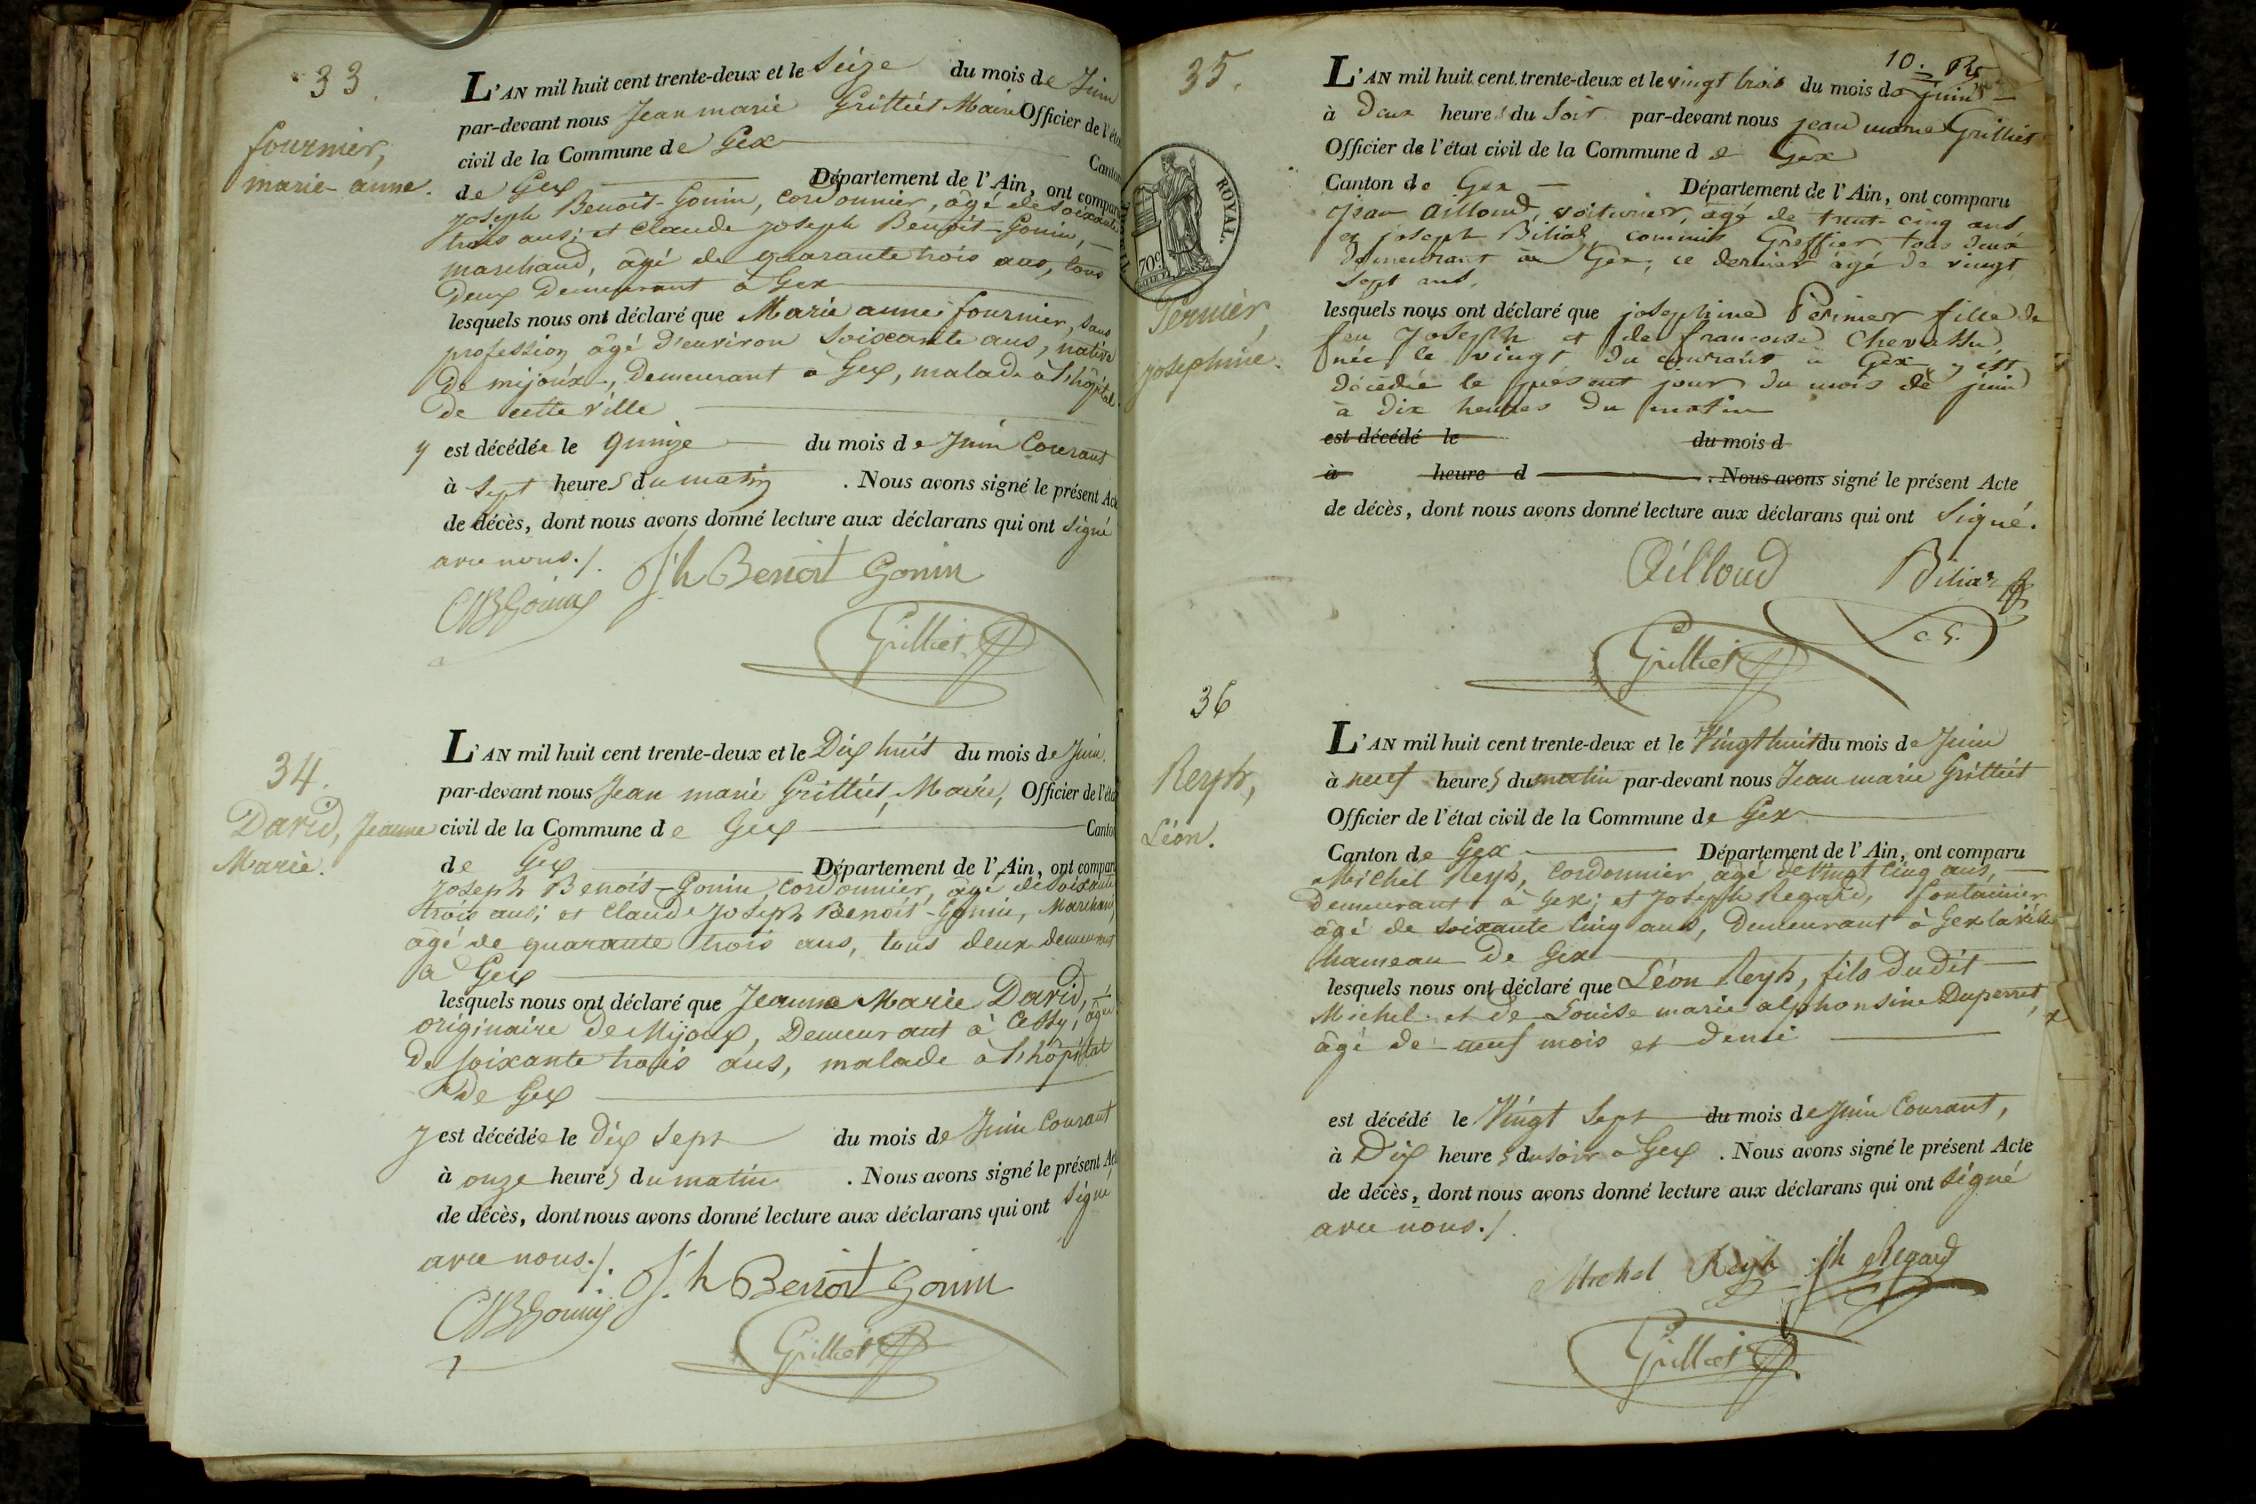 33.
fournier,
marie-anne.
L'AN mil huit cent trente-deux et le Seize du mois de Juin
par-devant nous Jean marie Grilliet Maire Officier de l'éta
civil de la Commune de Gex Canton
de Gex Département de l'Ain, ont compar
Joseph Benoit-Gonin, cordonnier, âgé de soixante
trois ans; et claude joseph Benoit-Gonin,
marchand, âgé de quarante trois ans, tous
deux demeurant à Gex
lesquels nous ont déclaré que Marie anne fournier, sans
profession âgé d'environ soixante ans, native
de mijoux, demeurant à Gex, malade à l'hôpital
de cette ville
y est décédée le quinze du mois de Juin Courant
à sept heures du matin . Nous avons signé le présent Acte
de décès, dont nous avons donné lecture aux déclarans qui ont signé
avec nous./.
Jh Benoit Gonin
CJBGonin
Grilliet
34.
David, Jeanne
Marie.
L'AN mil huit cent trente-deux et le Dix huit du mois de Juin.
par-devant nous Jean marie Grilliet, Maire, Officier de l'éta
civil de la Commune de Gex Canton
de Gex Département de l'Ain, ont compar
Joseph Benoit-Gonin, cordonnier, âgé de soixante
trois ans; et Claude Joseph Benoit-Gonin, Marchand,
âgé de quarante trois ans, tous deux demeurant
à Gex
lesquels nous ont déclaré que Jeanne Marie David,
originaire de Mijoux, Demeurant à Cessy, âgée
De soixante trois ans, malade à l'hôpital
De Gex
y est décédée le dix sept du mois de Juin Courant
à onze heures du matin . Nous avons signé le présent Act
de décès, dont nous avons donné lecture aux déclarans qui ont signé
avec nous./.
Jh Benoit Gonin
CJBGonin
Grilliet
10.
35.
ROYAL.
70c.
Pernier,
josephine.
L'AN mil huit cent trente-deux et le vingt trois du mois de juin
à Deux heures du Soir par-devant nous jean marie Grilliet
Officier de l'état civil de la Commune de Gex
Canton de Gex Département de l'Ain, ont comparu
Jean Ailloud, voiturier, âgé de trente cinq ans
et joseph Biliat, commis Greffier tous deux
demeurant à Gex, ce dernier âgé de vingt
sept ans,
lesquels nous ont déclaré que josephine Pernier fille de
feu Joseph et de francoise Chevassu
née le vingt du courant à Gex, y est
décédée le présent jour du mois de juin
à dix heures du matin
est décédé le du mois d
à heure d . Nous avons signé le présent Acte
de décès, dont nous avons donné lecture aux déclarans qui ont signé.
Ailloud Biliat
c. G.
Grilliet
36
Reyh,
Léon.
L'AN mil huit cent trente-deux et le Vingt huit du mois de Juin
à neuf heures du matin par-devant nous Jean marie Grilliet
Officier de l'état civil de la Commune de Gex
Canton de Gex Département de l'Ain, ont comparu
Michel Reyh, Cordonnier âgé de Vingt Cinq ans,
Demeurant à Gex; et Joseph Regard, fontainier
âgé de soixante Cinq ans, Demeurant à Gex la ville
hameau de Gex
lesquels nous ont déclaré que Léon Reyh, fils dudit
Michel et de Louise marie alphonsine Duperret,
âgé de neuf mois et demi
est décédé le Vingt Sept du mois de Juin Courant,
à Dix heures du soir à Gex . Nous avons signé le présent Acte
de décès, dont nous avons donné lecture aux déclarans qui ont signé
avec nous./.
Michel Reyh Jh Regard
Grilliet